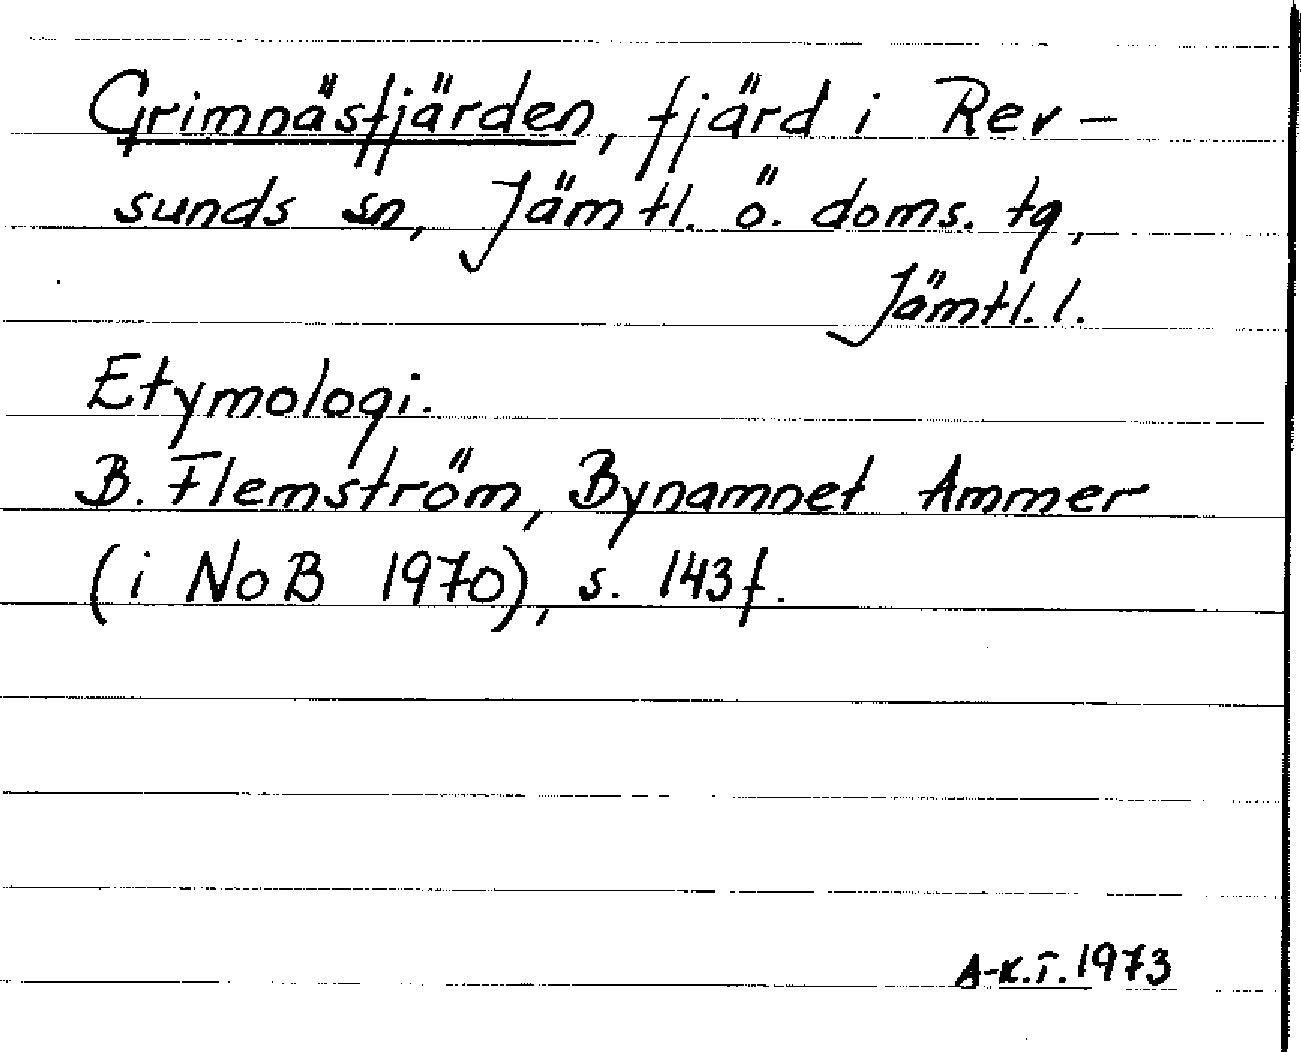 Grimnäsfjärden, fjärd i Rev-
sunds sn, Jämtl. ö. doms. tg,
Jämtl. l.
Etymologi.
B. Flemström, Bynamnet Ammer
(i NoB 1970), s. 143 f.
A-K.T. 1973